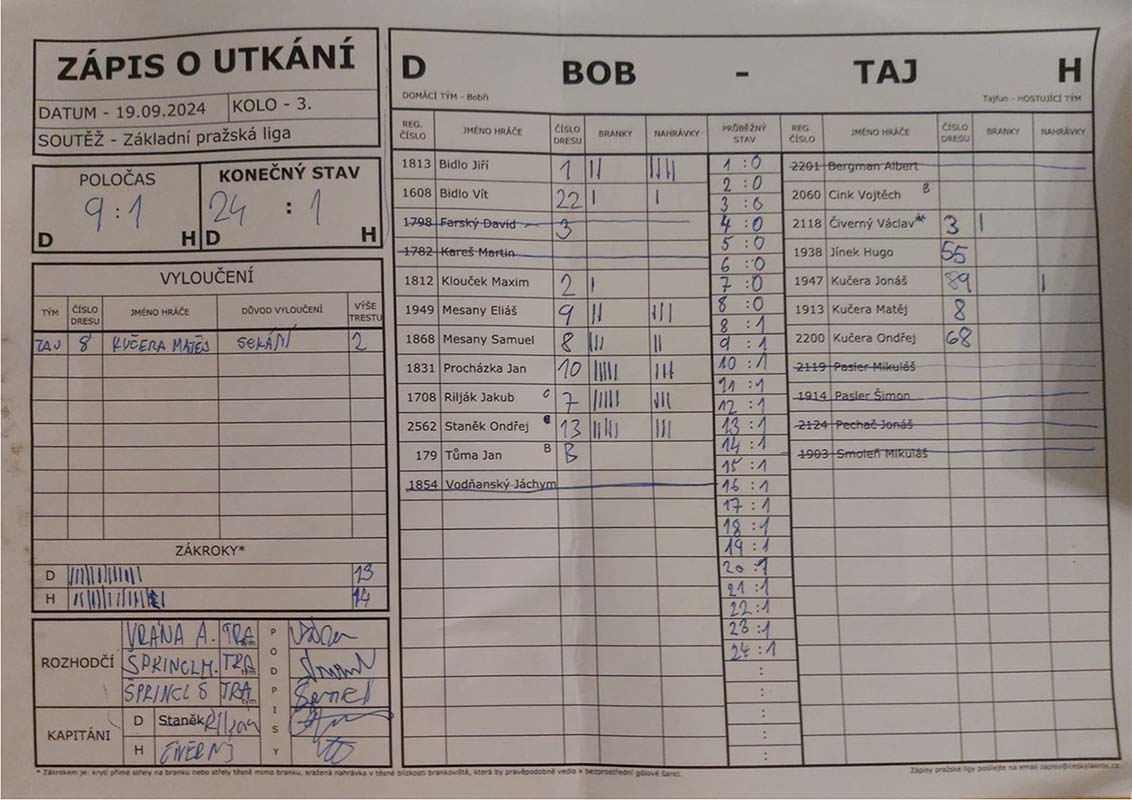 ZÁPIS O UTKÁNÍ
DATUM - 19.09.2024 KOLO - 3.
SOUTĚŽ - Základní pražská liga
POLOČAS KONEČNÝ STAV
9 : 1 24 : 1
D H D H
VYLOUČENÍ
TÝM ČÍSLO DRESU JMÉNO HRÁČE DŮVOD VYLOUČENÍ VÝŠE TRESTU
TAJ 8 KUČERA MATĚJ SEKÁNÍ 2
ZÁKROKY*
D 13
H 14
ROZHODČÍ
VRÁNA A. TRA tým
ŠPRINCL M. TRA tým
ŠPRINCL S TRA tým
PODPISY
KAPITÁNI
D Staněk Riljak
H ČIVERNÝ
D BOB - TAJ H
DOMÁCÍ TÝM - Bobři Tajfun - HOSTUJÍCÍ TÝM
REG. ČÍSLO JMÉNO HRÁČE ČÍSLO DRESU BRANKY NAHRÁVKY PRŮBĚŽNÝ STAV REG. ČÍSLO JMÉNO HRÁČE ČÍSLO DRESU BRANKY NAHRÁVKY
1813 Bidlo Jiří 1 || ||||
1608 Bidlo Vít 22 | |
1798 Farský David 3
1782 Kareš Martin
1812 Klouček Maxim 2 |
1949 Mesany Eliáš 9 || |||
1868 Mesany Samuel 8 ||| ||
1831 Procházka Jan 10 ||||| |||
1708 Rilják Jakub C 7 ||||| |||
2562 Staněk Ondřej 13 ||||| |||
179 Tůma Jan B B
1854 Vodňanský Jáchym
1 : 0
2 : 0
3 : 0
4 : 0
5 : 0
6 : 0
7 : 0
8 : 0
8 : 1
9 : 1
10 : 1
11 : 1
12 : 1
13 : 1
14 : 1
15 : 1
16 : 1
17 : 1
18 : 1
19 : 1
20 : 1
21 : 1
22 : 1
23 : 1
24 : 1
:
:
:
:
:
2201 Bergman Albert
2060 Cink Vojtěch B
2118 Čiverný Václav* 3 |
1938 Jínek Hugo 55
1947 Kučera Jonáš 89 |
1913 Kučera Matěj 8
2200 Kučera Ondřej 68
2119 Pasler Mikuláš
1914 Pasler Šimon
2124 Pechač Jonáš
1903 Smoleň Mikuláš
* Zákrokem je: krytí přímé střely na branku nebo střely těsně mimo branku, sražená nahrávka v těsné blízkosti brankoviště, která by pravěpodobně vedla k bezprostřední gólové šanci.
Zápisy pražské ligy posílejte na email zapisy@ceskylakros.cz